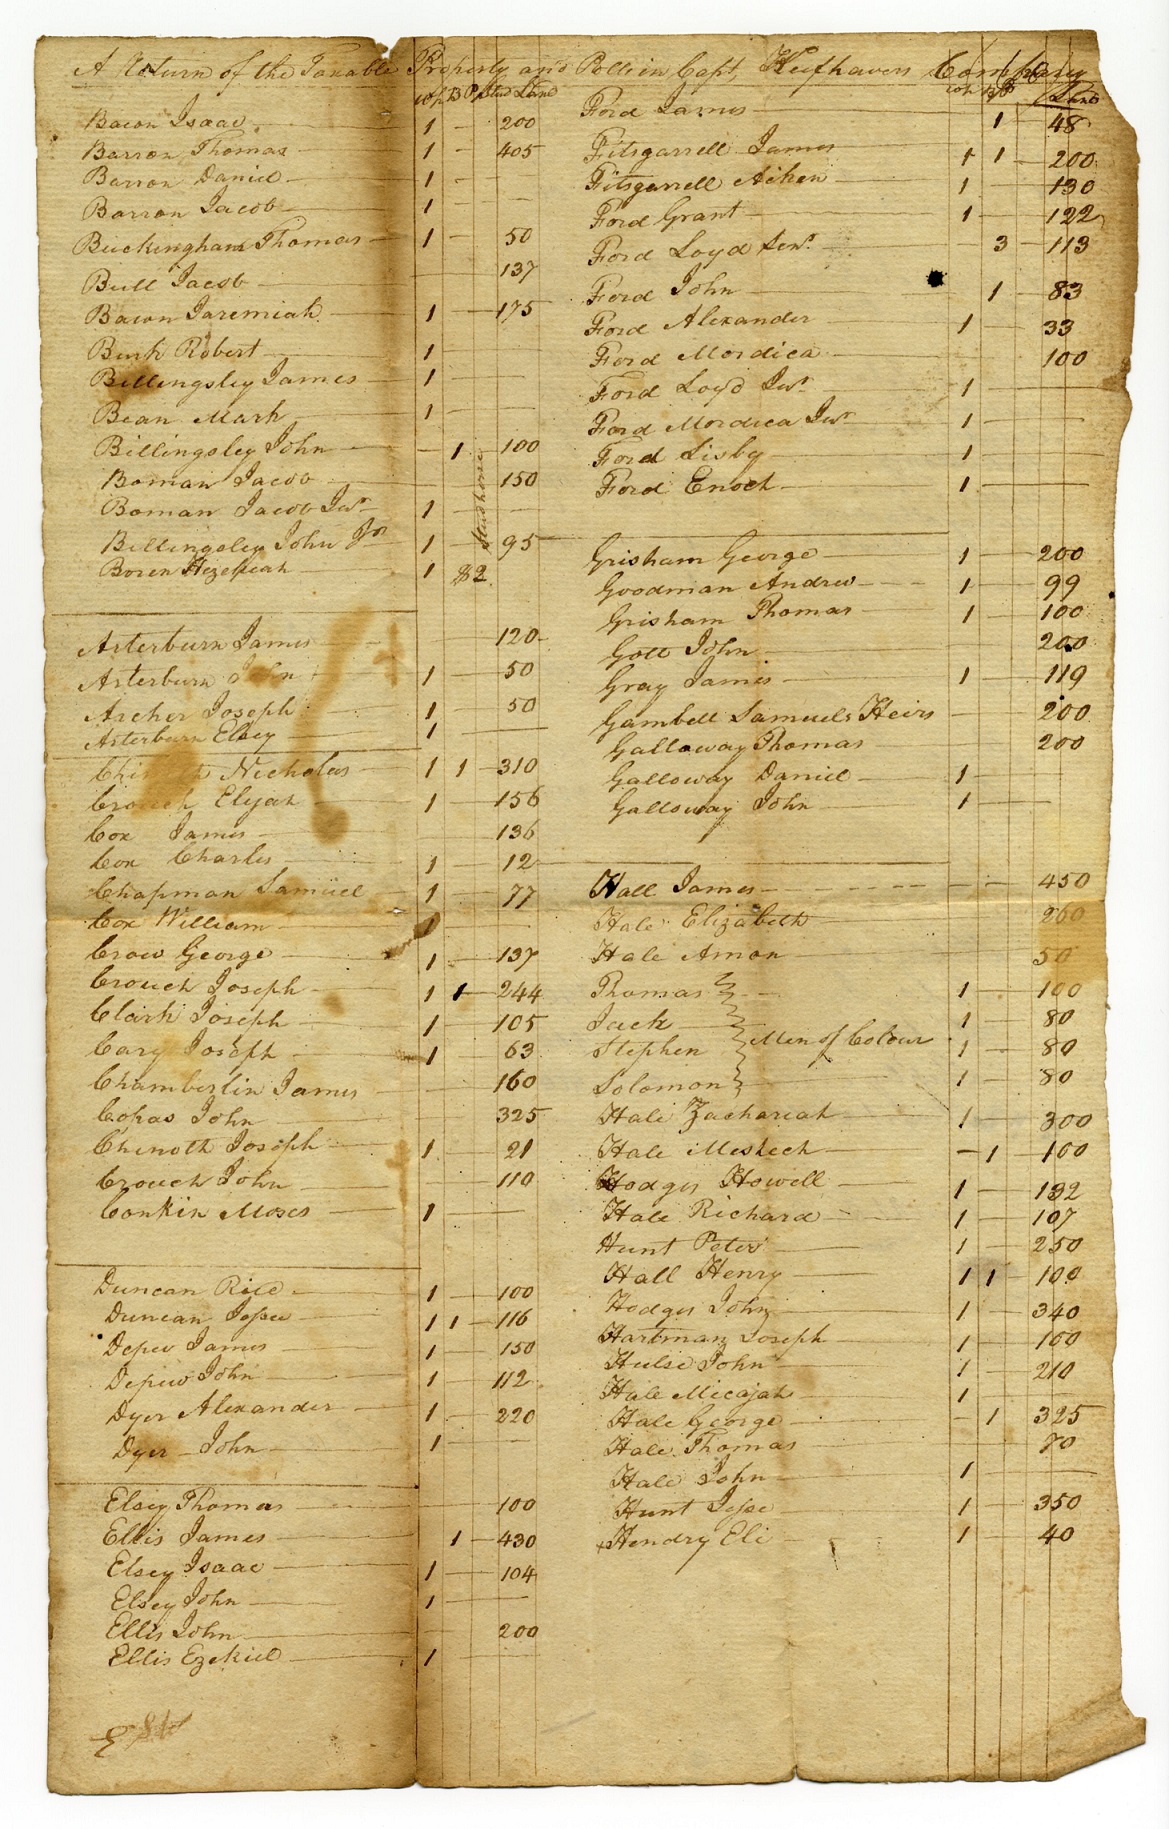 A Return of the Taxable Property and Polls in Capt, Company
Wh P B P Stud Land
Bacon Isaac 1 200
Barron Thomas 1 405
Barron Daniel 1
Barron Jacob 1
Buckingham Thomas 1 50
Bull Jacob 137
Bacon Jaremiah 1 175
Burk Robert 1
Billingsley James 1
Bean Mark 1
Billingsley John 1 100
Boman Jacob 150
Boman Jacob Junr 1
Billingsley John Jr 1 95
Boren Hezekiah 1 $2
Studhorse
Arterburn James 120
Arterburn John 1 50
Archer Joseph 1 50
Arterburn Elsey 1
Chinoth Nicholas 1 1 310
Crouch Elijah 1 156
Cox James 136
Cox Charles 1 12
Chapman Samuel 1 77
Cox William 1
Crow George 1 137
Crouch Joseph 1 1 244
Clark Joseph 1 105
Cary Joseph 1 63
Chamberlin James 160
Copas John 325
Chinoth Joseph 1 21
Crouch John 110
Conkin Moses 1
Duncan Rice 1 100
Duncan Jesse 1 1 116
Depew James 1 150
Depew John 1 112
Dyer Alexander 1 220
Dyer John 1
Elsey Thomas 100
Ellis James 1 430
Elsey Isaac 1 104
Elsey John 1
Ellis John 200
Ellis Ezekiel 1
Wh B P Land
Ford James 1 48
Fitsgarrell James 1 1 200
Fitsgarrell Aihen 1 130
Ford Grant 1 122
Ford Loyd Senr 3 113
Ford John 1 83
Ford Alexander 1 33
Ford Mordica 100
Ford Loyd Junr 1
Ford Mordica Junr 1
Ford Lisby 1
Ford Enoch 1
Grisham George 1 200
Goodman Andrew 1 99
Grisham Thomas 1 100
Gott John 200
Gray James 1 119
Gambell Samuels Heirs 200
Galloway Thomas 200
Galloway Daniel 1
Galloway John 1
Hall James 450
Hale Elizabeth 260
Hale Amon 50
Thomas 1 100
Jack 1 80
Stephen Men of Colour 1 80
Solomon 1 80
Hale Zachariah 1 300
Hale Meshech 1 100
Hodges Howell 1 132
Hale Richard 1 107
Hunt Peter 1 250
Hall Henry 1 1 100
Hodges John 1 340
Hartman Joseph 1 100
Hulse John 1 210
Hale Micajah 1
Hale George 1 325
Hale Thomas 70
Hale John 1
Hunt Jesse 1 350
Hendry Eli 1 40